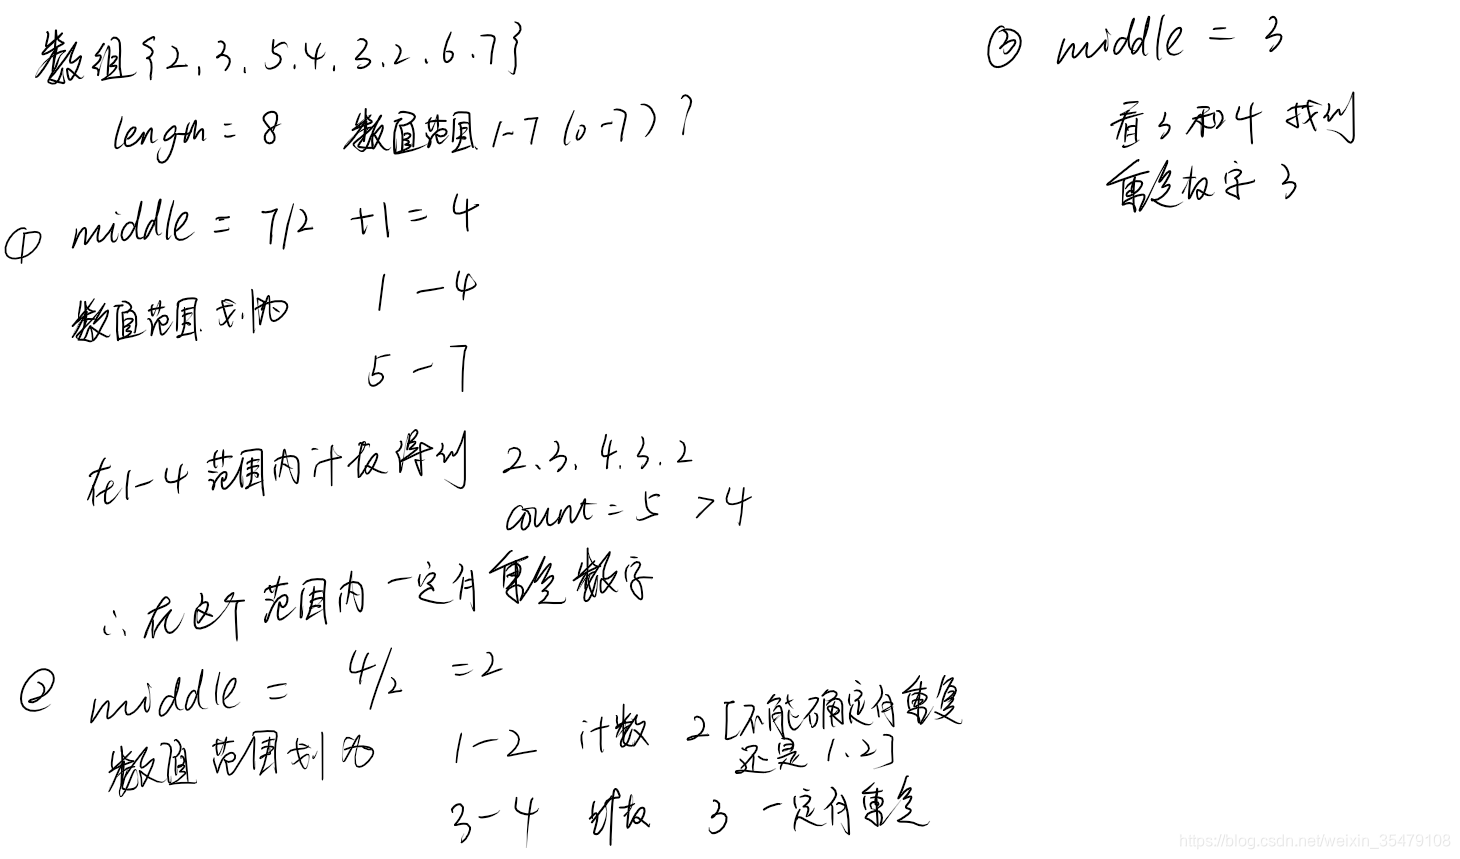 数组{2,3,5,4,3,2,6,7}
length = 8 数值范围 1-7 (0-7) ?
① middle = 7/2 +1 = 4
数值范围 划为 1 - 4
5 - 7
在1-4 范围内计数得到 2、3、4、3、2
count = 5 > 4
∴ 在这个范围内一定有重复数字
② middle = 4/2 = 2
数值范围划为 1-2 计数 2 [不能确定有重复
还是1、2]
3-4 计数 3 一定有重复
③ middle = 3
看3和4 找到
重复数字 3
https://blog.csdn.net/weixin_35479108